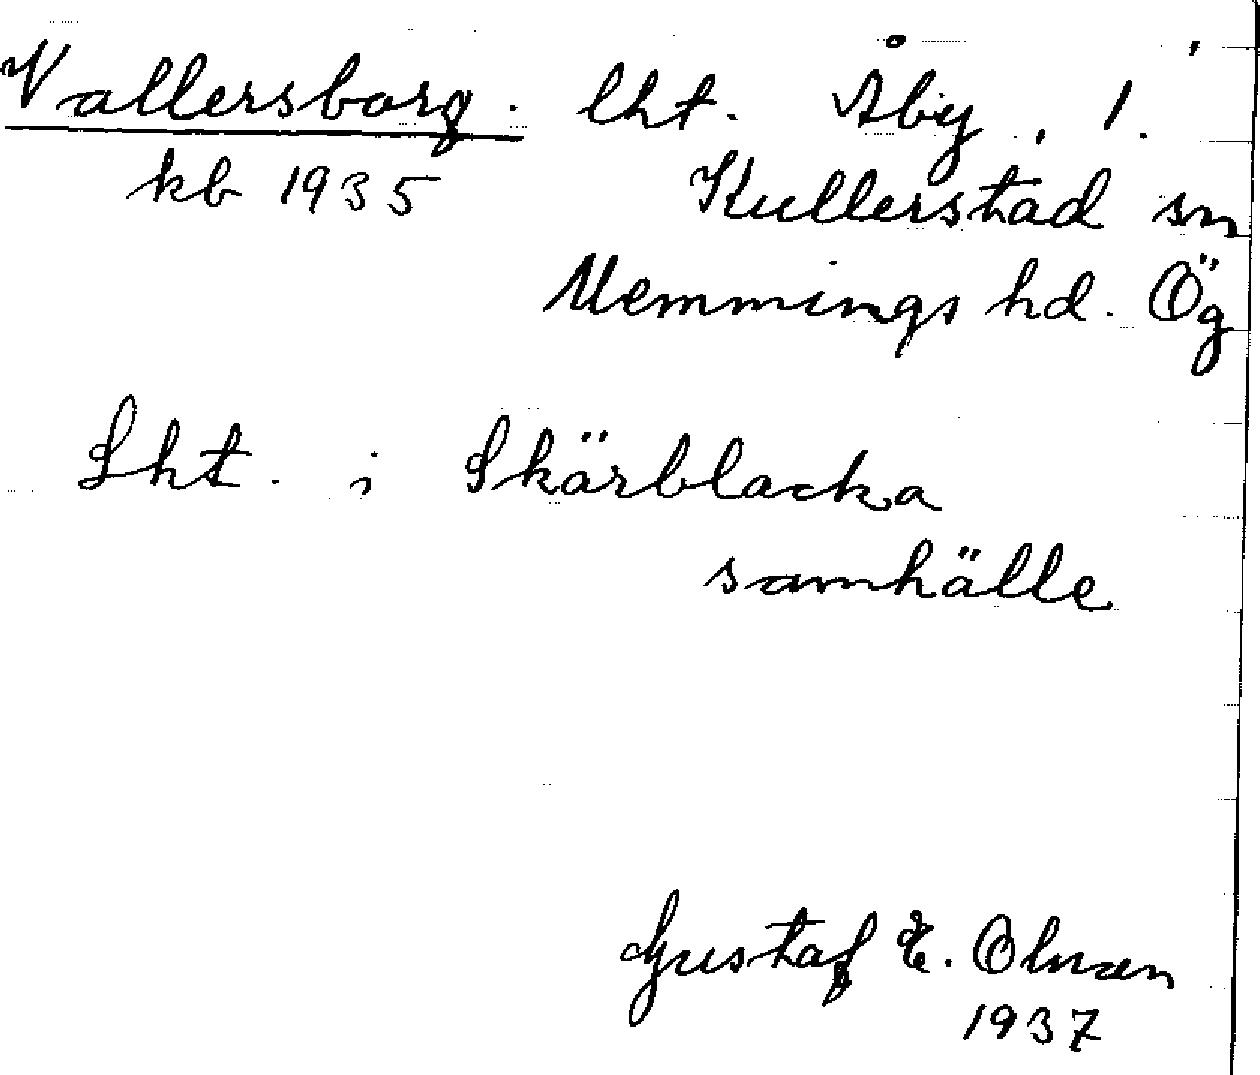 Vallersborg. lht. Åby, 1.
kb 1935 Kullerstad sn
Memmings hd. Ög
Lht. i Skärblacka
samhälle
Gustaf E. Olman
1937